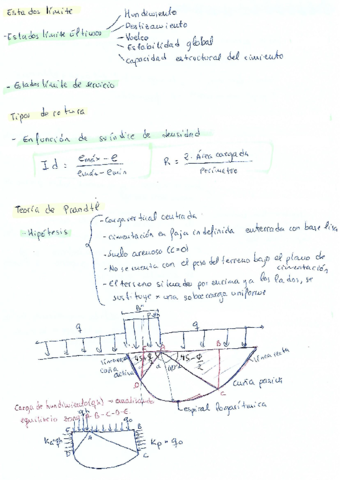 Estados límite
- Estados límite últimos
Hundimiento
Deslizamiento
Vuelco
Estabilidad global
Capacidad estructural del cimiento
- Estados límite de servicio
Tipos de rotura
- En función de su índice de densidad
Id = (emáx - e) / (emáx - emin)
R = 2·Área cargada / Perímetro
Teoría de Prandtl
- Hipótesis
- Carga vertical centrada
- cimentación en faja indefinida enterrada con base lisa
- Suelo arenoso (c=0)
- No se cuenta con el peso del terreno bajo el plano de cimentación
- El terreno situado por encima y a los lados, se
sustituye = una sobrecarga uniforme
B
q
q
cuña
activa
45-φ/2
línea recta
cuña pasiva
espiral logarítmica
Carga de hundimiento (qh) =
equilibrio B-C-D-E
A
B
C
Kp = q0